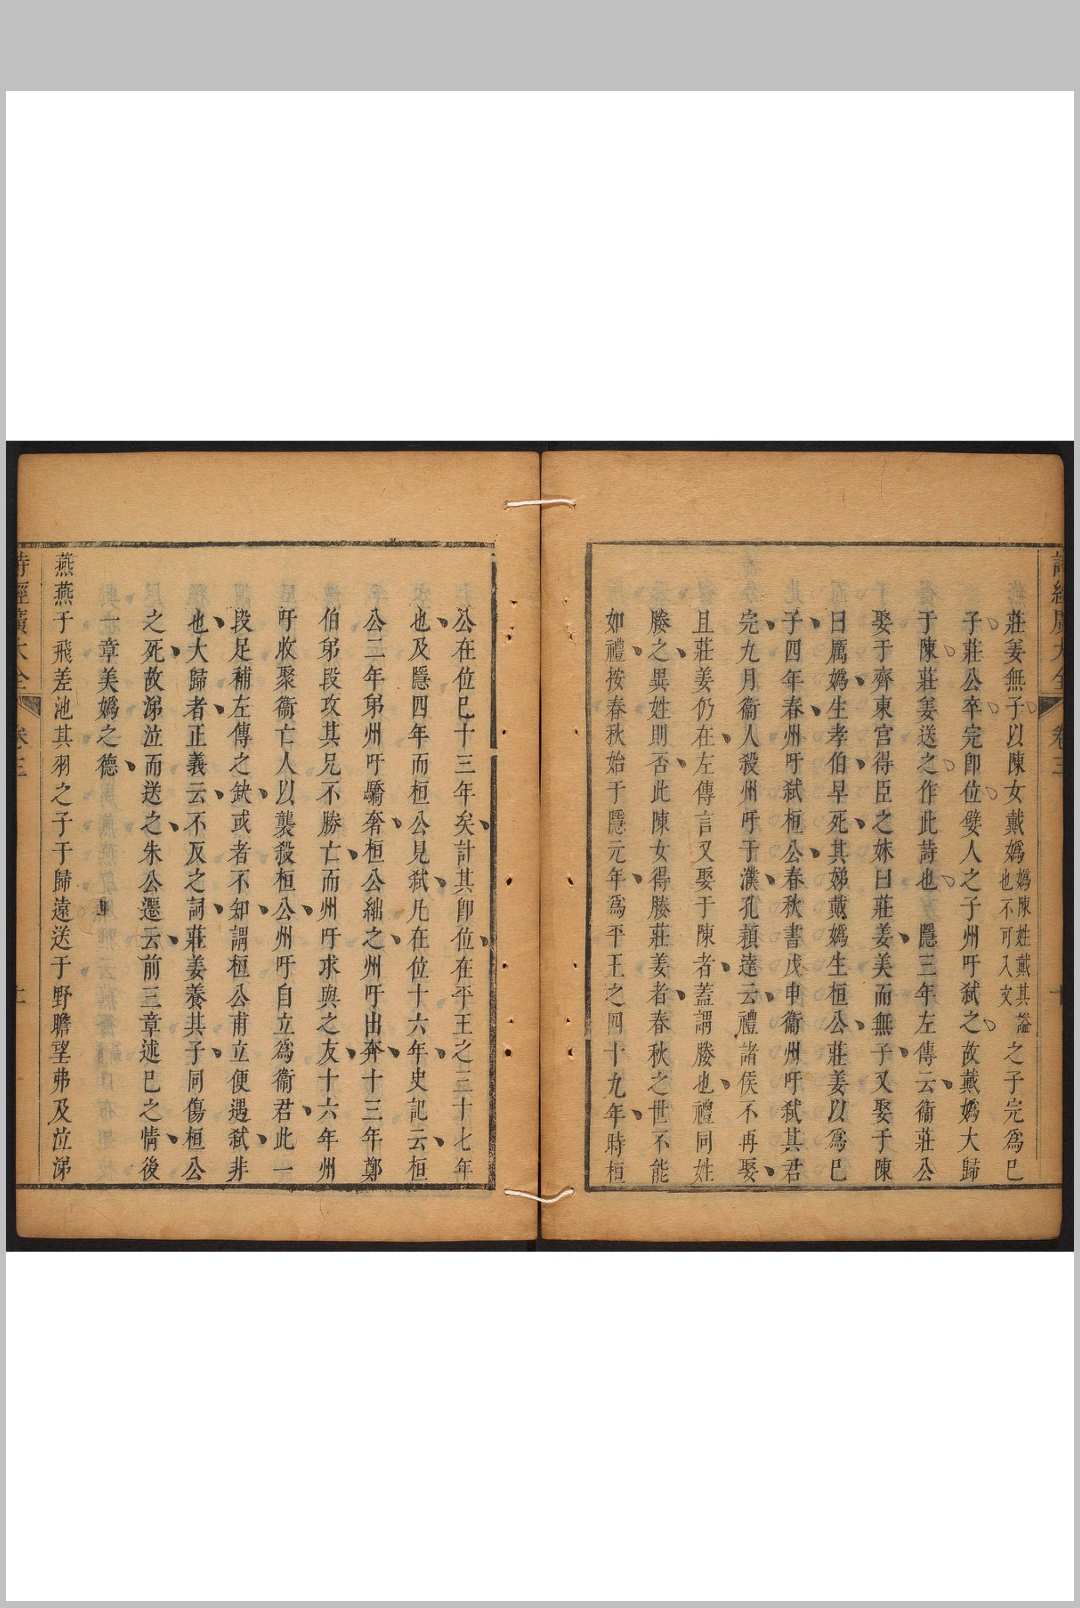 詩經廣大全 卷三 十
莊姜無子以陳女戴嬀嬀陳姓戴其謚也不可入文之子完爲已
子莊公卒完卽位嬖人之子州吁弑之故戴嬀大歸
于陳莊姜送之作此詩也隱三年左傳云衞莊公
娶于齊東宮得臣之妹曰莊姜美而無子又娶于陳
曰厲嬀生孝伯早死其娣戴嬀生桓公莊姜以爲已
子四年春州吁弑桓公春秋書戊申衞州吁弑其君
完九月衞人殺州吁于濮孔穎達云禮諸侯不再娶
且莊姜仍在左傳言又娶于陳者蓋謂媵也禮同姓
媵之異姓則否此陳女得媵莊姜者春秋之世不能
如禮按春秋始于隱元年爲平王之四十九年時桓
公在位已十三年矣計其卽位在平王之三十七年
也及隱四年而桓公見弑凡在位十六年史記云桓
公二年弟州吁驕奢桓公絀之州吁出奔十三年鄭
伯弟段攻其兄不勝亡而州吁求與之友十六年州
吁收聚衞亡人以襲殺桓公州吁自立爲衞君此一
段足補左傳之缺或者不知謂桓公甫立便遇弑非
也大歸者正義云不反之詞莊姜養其子同傷桓公
之死故涕泣而送之朱公遷云前三章述已之情後
一章美嬀之德
燕燕于飛差池其羽之子于歸遠送于野瞻望弗及泣涕
詩經廣大全 卷三